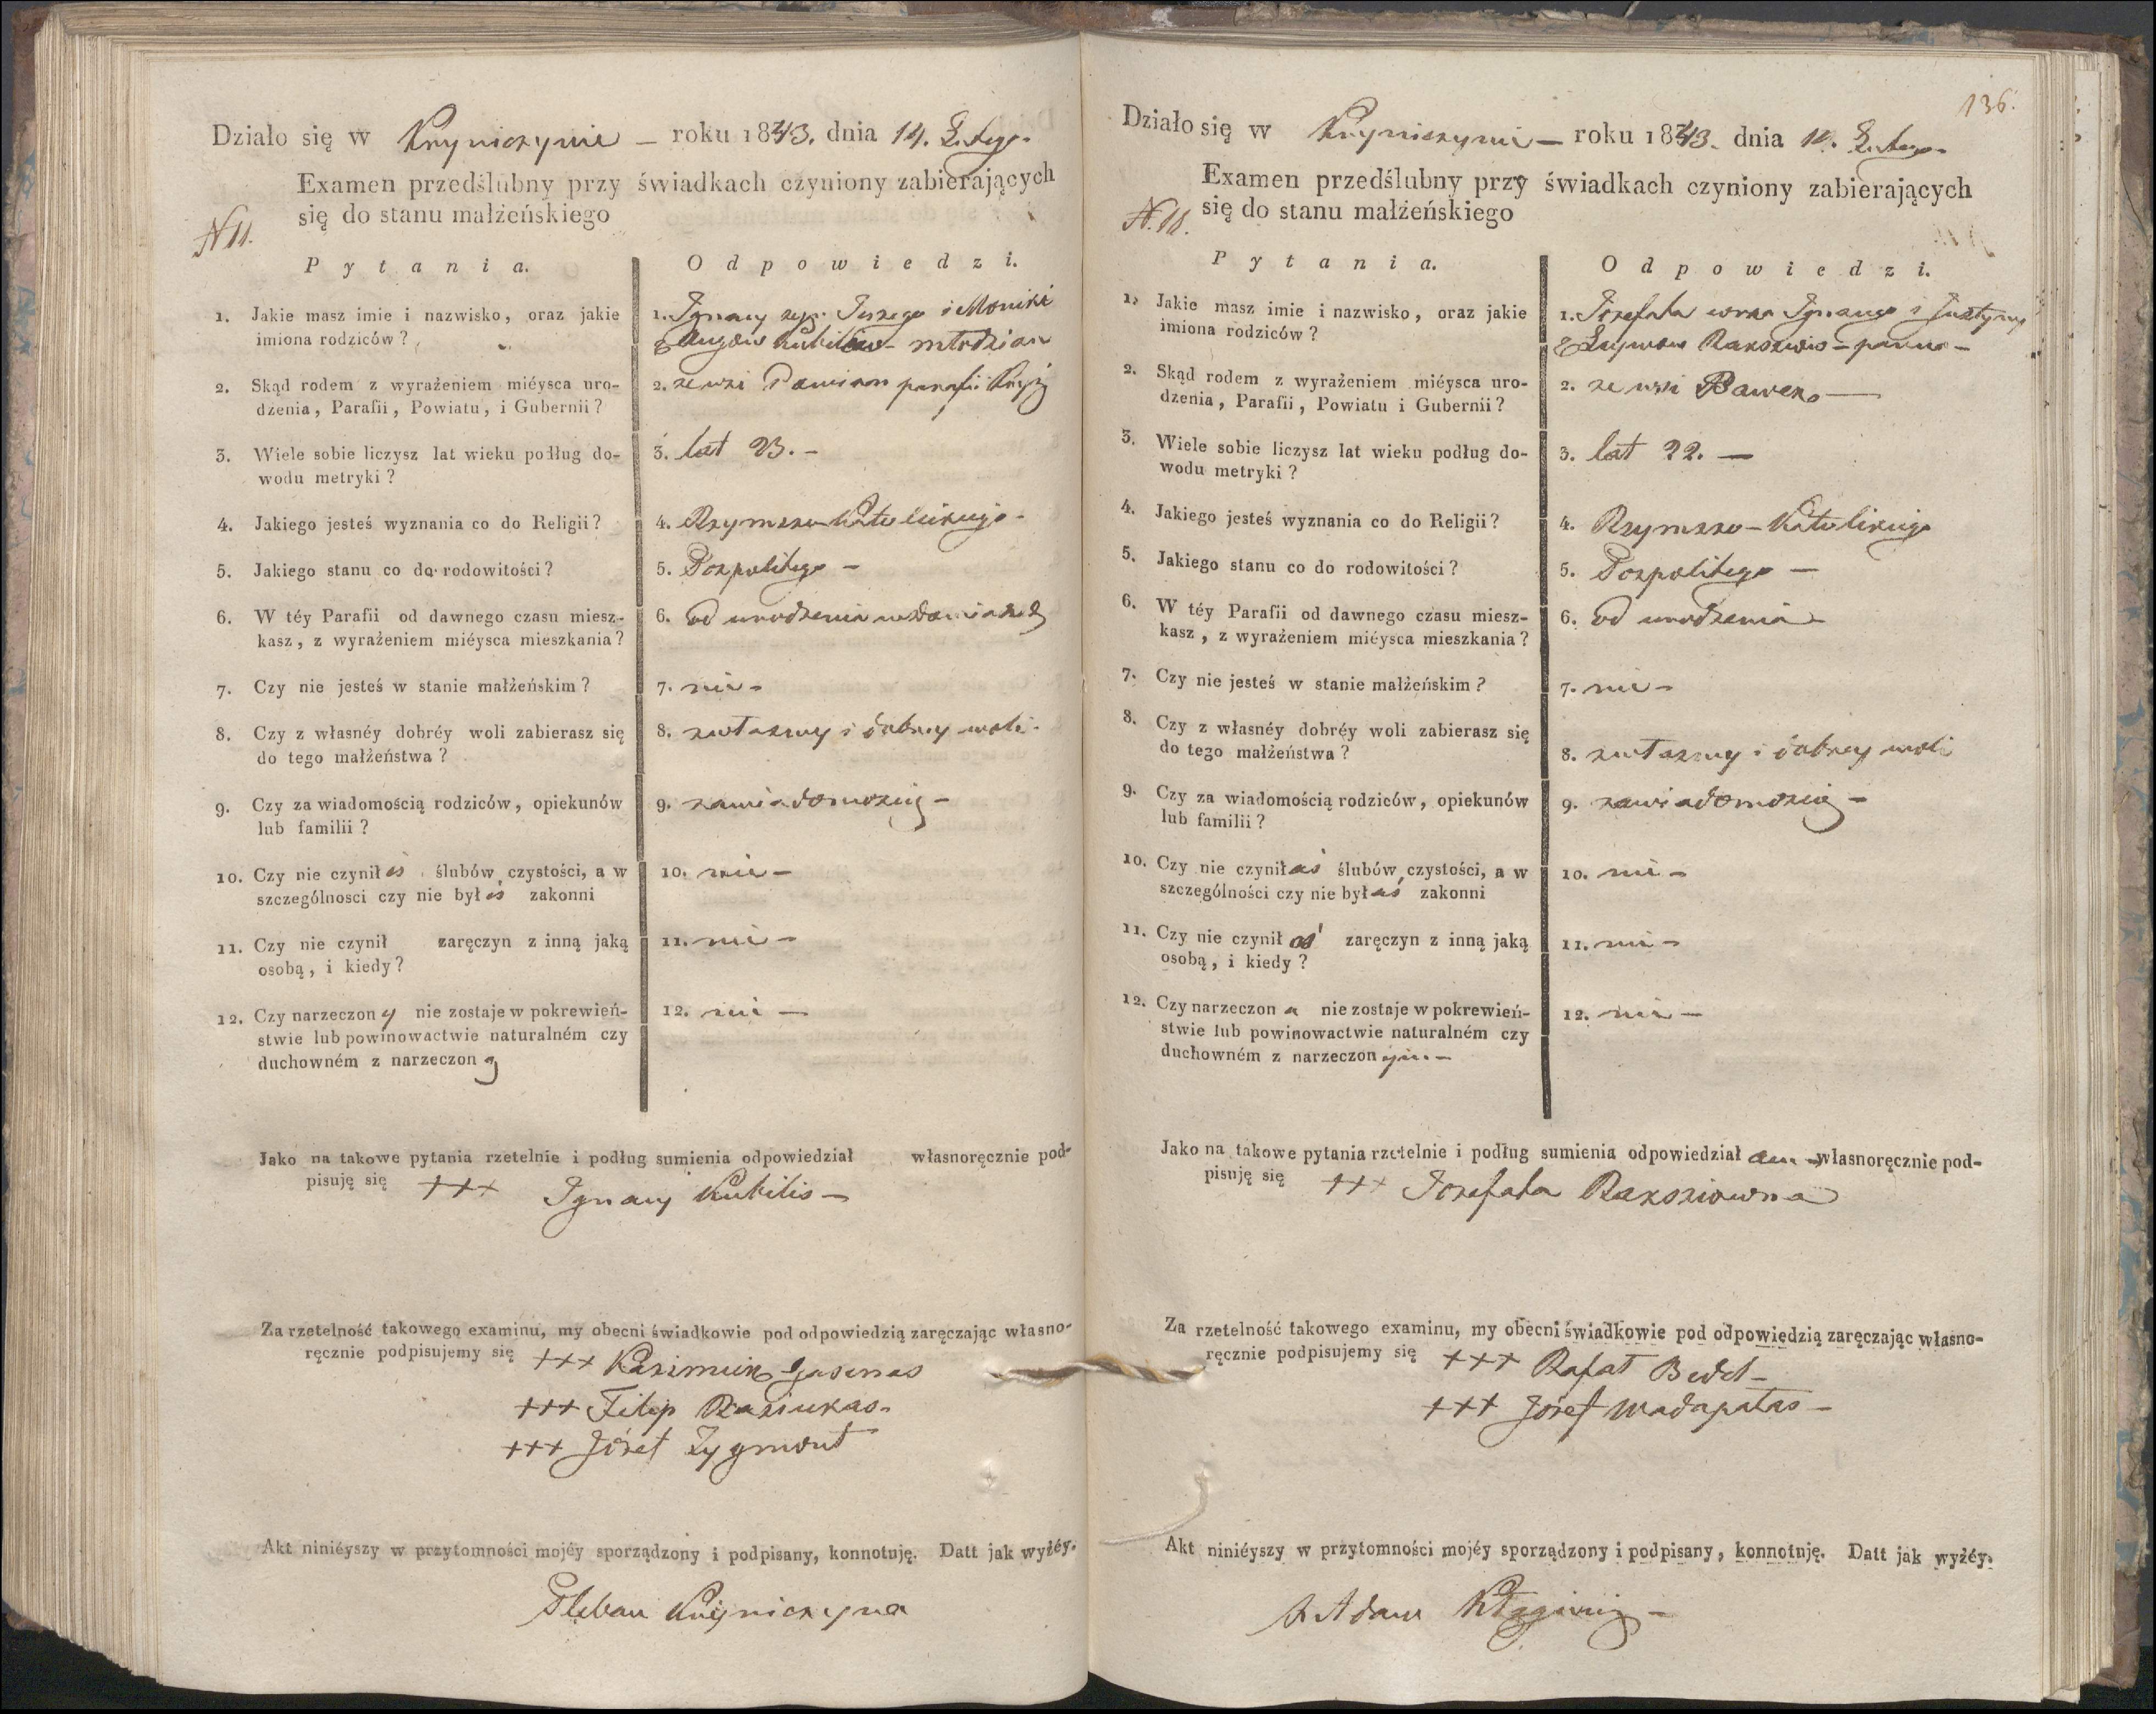 Działo się w Kryniczynie – roku 1843. dnia 14. Lutego
Examen przedślubny przy świadkach czyniony zabierających
się do stanu małżeńskiego
N 11.
Pytania.
Odpowiedzi.
1. Jakie masz imie i nazwisko, oraz jakie
imiona rodziców?
1. Ignacy syn Jerzego i Moniki
Kubilów – młodzian
2. Skąd rodem z wyrażeniem miéysca uro-
dzenia, Parafii, Powiatu, i Gubernii?
2. ze wsi parafii
3. Wiele sobie liczysz lat wieku podług do-
wodu metryki?
3. lat 23. –
4. Jakiego jesteś wyznania co do Religii?
4. Rzymsko Katolickiego –
5. Jakiego stanu co do rodowitości?
5. Pospolitego –
6. W téy Parafii od dawnego czasu miesz-
kasz, z wyrażeniem miéysca mieszkania?
6. od urodzenia
7. Czy nie jesteś w stanie małżeńskim?
7. nie –
8. Czy z własnéy dobréy woli zabierasz się
do tego małżeństwa?
8. z własney i dobrey woli –
9. Czy za wiadomością rodziców, opiekunów
lub familii?
9. za wiadomością –
10. Czy nie czynił eś ślubów czystości, a w
szczególnosci czy nie był eś zakonni
10. nie –
11. Czy nie czynił zaręczyn z inną jaką
osobą, i kiedy?
11. nie –
12. Czy narzeczon y nie zostaje w pokrewień-
stwie lub powinowactwie naturalném czy
duchowném z narzeczon ą
12. nie –
Jako na takowe pytania rzetelnie i podług sumienia odpowiedział własnoręcznie pod-
pisuję się +++ Ignacy Kubilis –
Za rzetelność takowego examinu, my obecni świadkowie pod odpowiedzią zaręczając własno-
ręcznie podpisujemy się +++ Kazimierz
+++ Filip
+++ Józef Zygmont
Akt niniéyszy w przytomności mojéy sporządzony i podpisany, konnotuję. Datt jak wyżéy.
Pleban Kryniczyna
136.
Działo się w Kryniczynie – roku 1843. dnia 14. Lutego –
Examen przedślubny przy świadkach czyniony zabierających
się do stanu małżeńskiego
N. 11.
Pytania.
Odpowiedzi.
1. Jakie masz imie i nazwisko, oraz jakie
imiona rodziców?
1. Jozefata córka Ignacego i Justyny
– panna –
2. Skąd rodem z wyrażeniem miéysca uro-
dzenia, Parafii, Powiatu i Gubernii?
2. ze wsi
3. Wiele sobie liczysz lat wieku podług do-
wodu metryki?
3. lat 22. –
4. Jakiego jesteś wyznania co do Religii?
4. Rzymsko – Katolickiego
5. Jakiego stanu co do rodowitości?
5. Pospolitego –
6. W téy Parafii od dawnego czasu miesz-
kasz, z wyrażeniem miéysca mieszkania?
6. od urodzenia
7. Czy nie jesteś w stanie małżeńskim?
7. nie –
8. Czy z własnéy dobréy woli zabierasz się
do tego małżeństwa?
8. z własney i dobrey woli
9. Czy za wiadomością rodziców, opiekunów
lub familii?
9. za wiadomością –
10. Czy nie czynił aś ślubów czystości, a w
szczególności czy nie był aś zakonni
10. nie –
11. Czy nie czynił aś zaręczyn z inną jaką
osobą, i kiedy?
11. nie –
12. Czy narzeczon a nie zostaje w pokrewień-
stwie lub powinowactwie naturalném czy
duchowném z narzeczon ym –
12. nie –
Jako na takowe pytania rzetelnie i podług sumienia odpowiedział am własnoręcznie pod-
pisuję się +++ Jozefata
Za rzetelność takowego examinu, my obecni świadkowie pod odpowiedzią zaręczając własno-
ręcznie podpisujemy się +++ Rafał
+++ Józef
Akt niniéyszy w przytomności mojéy sporządzony i podpisany, konnotuję. Datt jak wyżéy.
X Adam